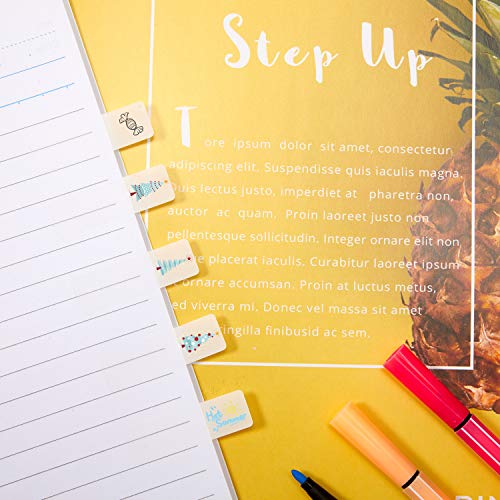 Step Up
Tore ipsum dolor sit amet, consectetur
adipiscing elit. Suspendisse quis iaculis magna.
Duis lectus justo, imperdiet at pharetra non,
auctor ac quam. Proin laoreet justo non
pellentesque sollicitudin. Integer ornare elit non
placerat iaculis. Curabitur laoreet ipsum
ornare accumsan. Proin at luctus metus,
ed viverra mi. Donec vel massa sit amet
fringilla finibusid ac sem.
Hot
Summer